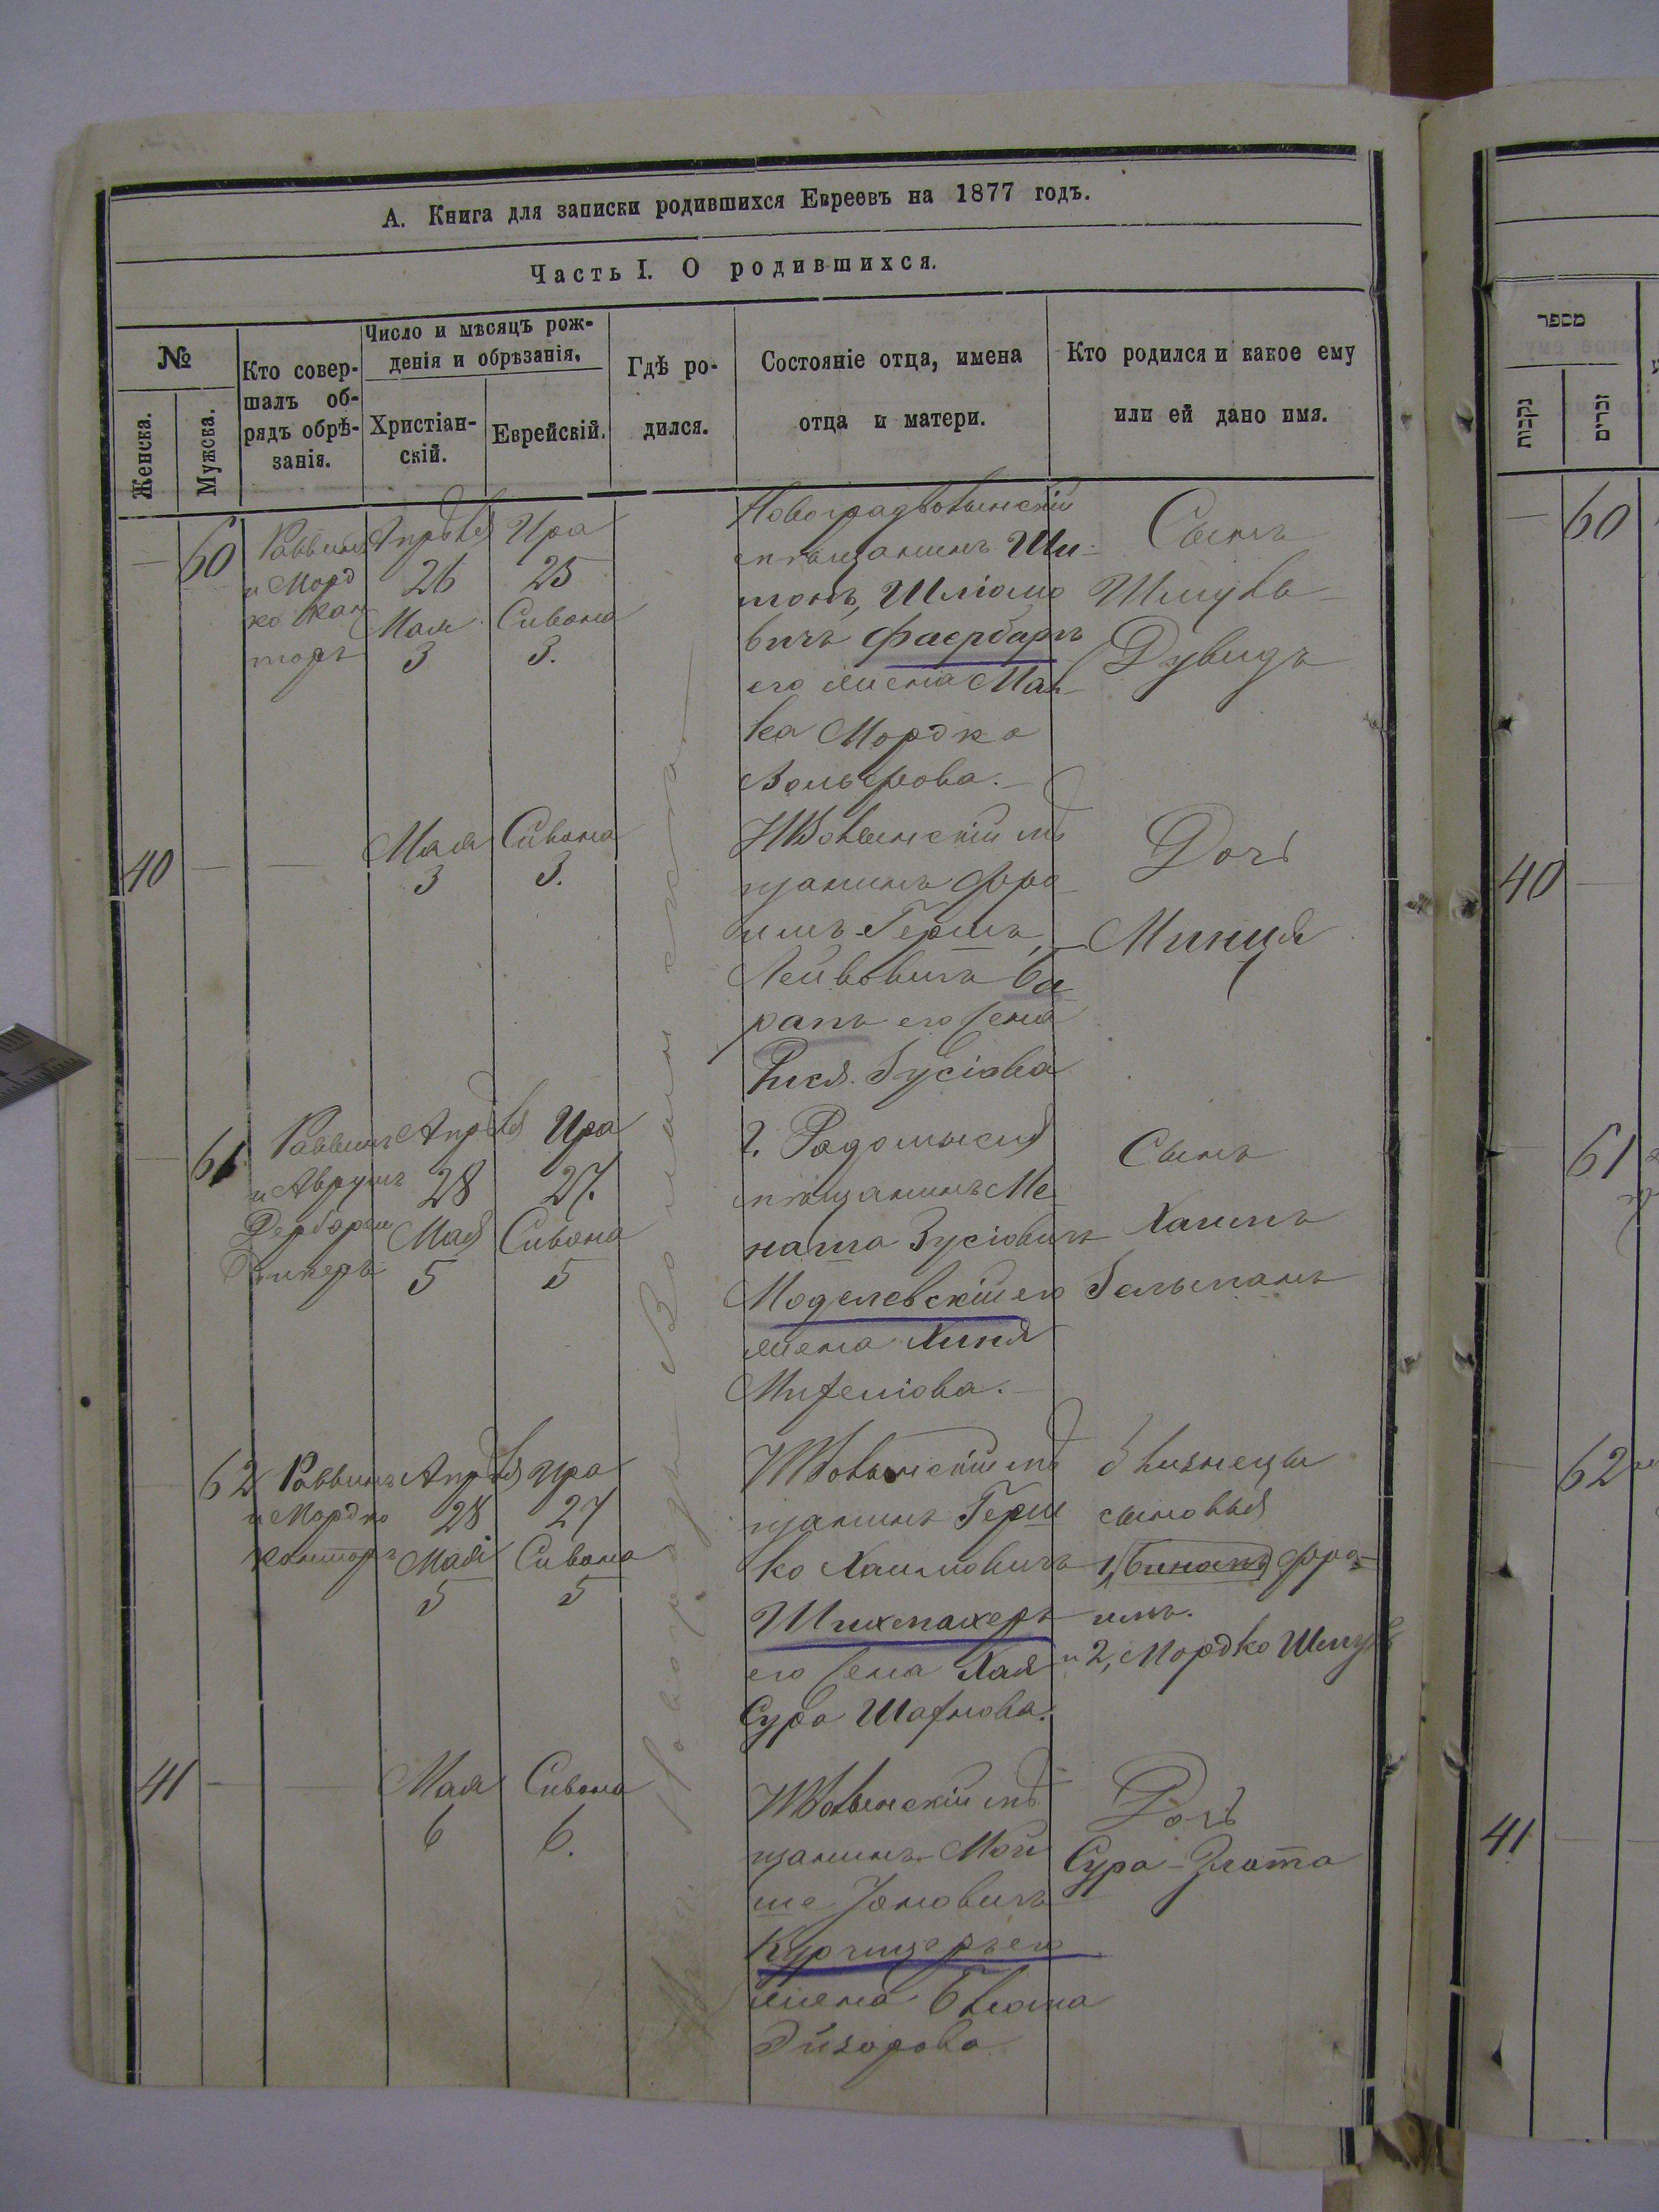 А. Книга для записки родившихся Евреевъ на 1877 годъ.
Часть I. О родившихся.
№
Женска.
Мужска.
Кто совер-
шалъ об-
рядъ обрѣ-
занія.
Число и мѣсяцъ рож-
денія и обрѣзанія.
Христіан-
скій.
Еврейскій.
Гдѣ ро-
дился.
Состояніе отца, имена
отца и матери.
Кто родился и какое ему
или ей дано имя.
60
Раввинъ
и Морд
ко Кан
торъ
Апрѣля
26
Мая
3
Ира
25
Сивана
3.
Новоградволынскій
мѣщанинъ Ши-
монъ, Шліомо
вичъ Фаербаръ
его жена Мал-
ка Мордко
Вольфова.
Сынъ
Шмуль
Дувидъ
40
Мая
3
Сивана
3.
НВолынскій мѣ
щанинъ Фро
имъ-Гершъ
Лейбовичъ Ба
ранъ его жена
Рися Зусіова
Дочь
Минця
61
Раввинъ
и Аврумъ
Апрѣля
28
Мая
5
Ира
27.
Сивана
5
г. Радомысля
мѣщанинъ Ме
наша Зусіовичъ
Моделевскій его
жена Хиня
Михеліова.
Сынъ
Хаимъ
Зельманъ
62
Раввинъ
и Мордко
Канторъ
Апрѣля
28
Мая
5
Ира
27
Сивана
5
НВолынскій мѣ
щанинъ Герш
ко Хаимовичъ
Шихмахеръ
его жена Хая
Сура Шахнова.
Близнецы
сыновья
1, Фро-
имъ.
и 2, Мордко Шмуль
41
Мая
6
Сивана
6.
НВолынскій мѣ
щанинъ Мой
ше Іановичъ
его
жена Блюма
Дочь
Сура-Злота
Въ г. Новоградъ Волынскъ
מספר
נקבות
זכרים
60
40
61
62
41